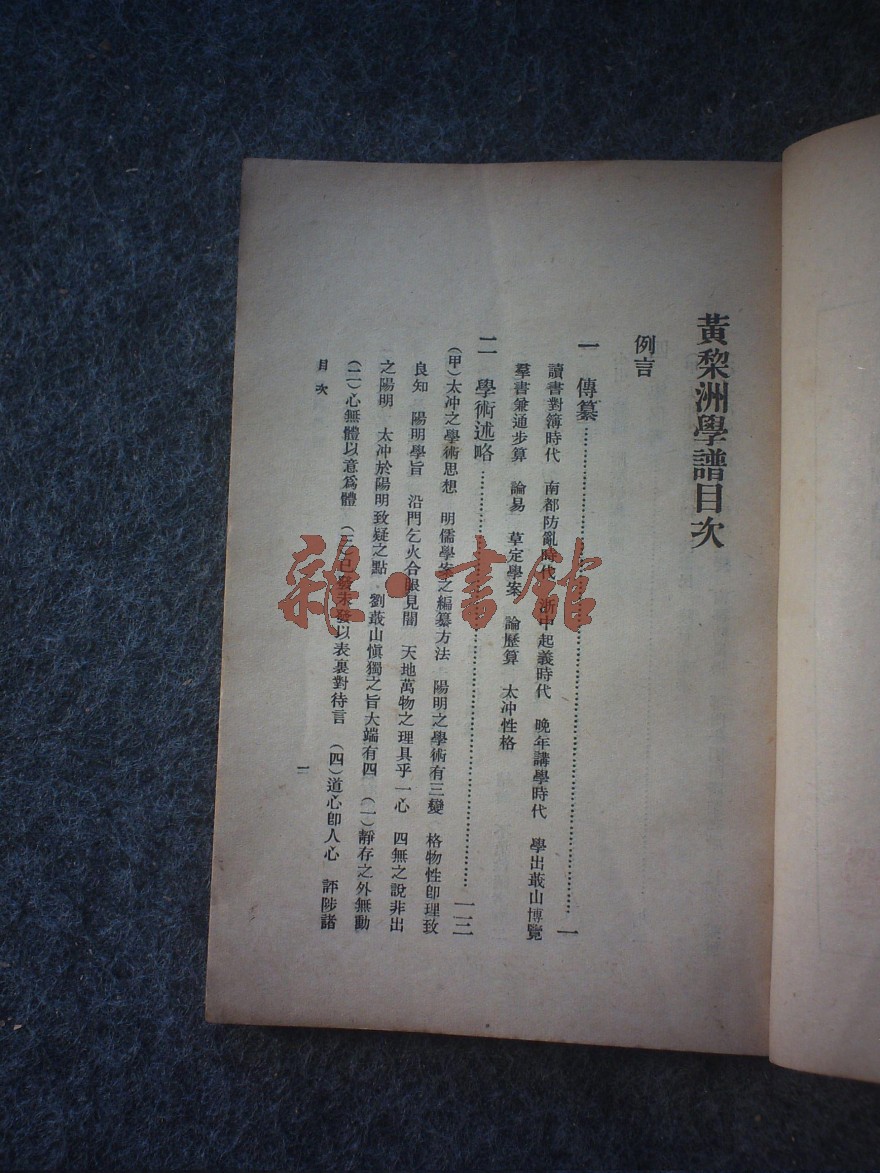 黃黎洲學譜目次
例言
一 傳纂……一
讀書對簿時代 南都防亂時代 浙中起義時代 晚年講學時代 學出蕺山博覽
羣書兼通步算 論易 草定學案 論歷算 太冲性格
二 學術述略……一三
(甲)太冲之學術思想 明儒學案之編纂方法 陽明之學術有三變 格物性卽理致
良知 陽明學旨 沿門乞火合眼見闇 天地萬物之理具乎一心 四無之說非出
之陽明 太冲於陽明致疑之點 劉蕺山愼獨之旨大端有四 (一)靜存之外無動
(二)心無體以意爲體 (三)已發未發以表裏對待言 (四)道心卽人心 評陟諸
目次
一
雜·書館